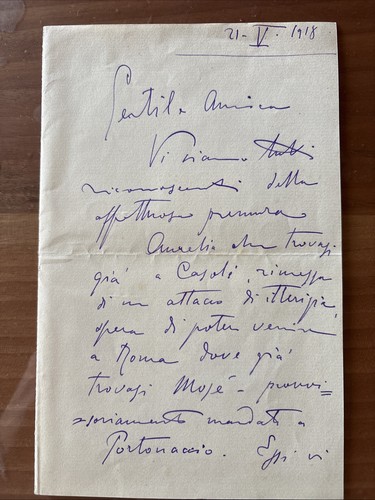 21-V-1918
Gentile Amica
Vi siamo tutti
riconoscenti della
affettuosa premura
Aurelia che trovasi
già a Casole, rimessa
di un attacco di itterizia,
spera di poter venire
a Roma dove già
trovasi Mosé - provvi=
soriamente mandato a
Portonaccio. Essi vi